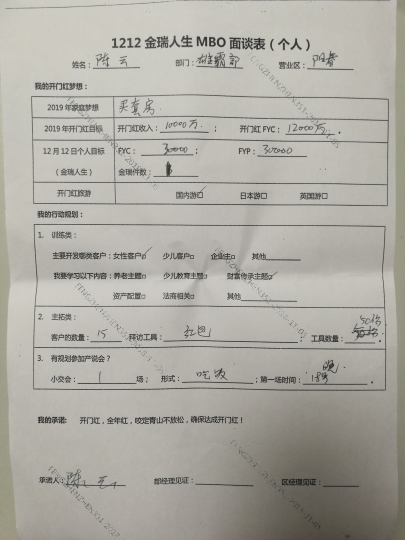 1212 金瑞人生 MBO 面谈表（个人）
姓名：陈云 部门：雄霸部 营业区：阳春
我的开门红梦想：
2019 年家庭梦想 买套房
2019 年开门红目标 开门红收入：10000万； 开门红 FYC：12000万。
12 月 12 日个人目标 FYC：30000； FYP：300000
（金瑞人生） 金瑞件数：
开门红旅游 国内游□ 日本游□ 英国游□
我的行动规划：
1. 训练类：
主要开发哪类客户：女性客户☑ 少儿客户□ 企业主□ 其他
我要学习以下内容：养老主题□ 少儿教育主题□ 财富传承主题☑
资产配置□ 法商相关□ 其他
2. 主拓类： 50份
客户的数量：15 拜访工具：红包 工具数量：。
3. 有规划参加产说会？ 晚
小交会：1 场； 形式：吃饭；第一场时间：18号。
我的承诺： 开门红，全年红，咬定青山不放松，确保达成开门红！
承诺人：陈云 部经理见证： 区经理见证：